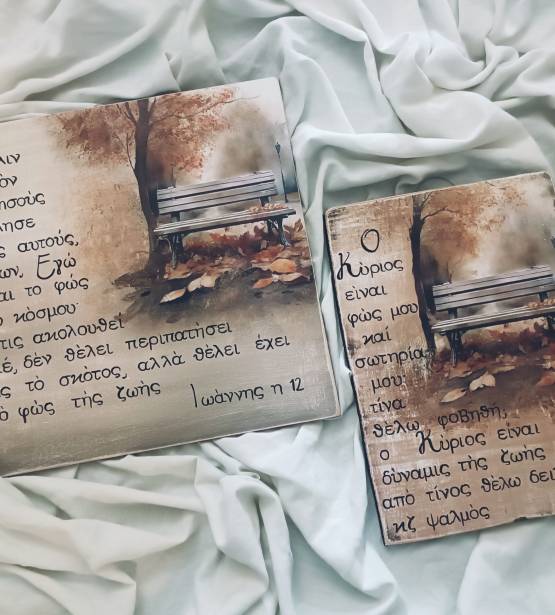 λιν
ὸν
ησοῦς
λησε
ς αὐτούς,
ων, Ἐγώ
αι το φώς
ο κόσμου·
τις ακολουθεί
έ, δὲν θὲλει περιπατὴσει
ς τὸ σκότος, αλλὰ θὲλει ἐχει
ὸ φὼς τὴς ζωὴς
Ιωάννης η 12
Ο
Κύριος
εἰναι
φὼς μου
καί
σωτηρία
μου;
τίνα
θέλω φοβηθή;
ο Κύριος εἰναι
δὺναμις τὴς ζωὴς
απὸ τίνος θὲλω δει
κζ ψαλμὸς